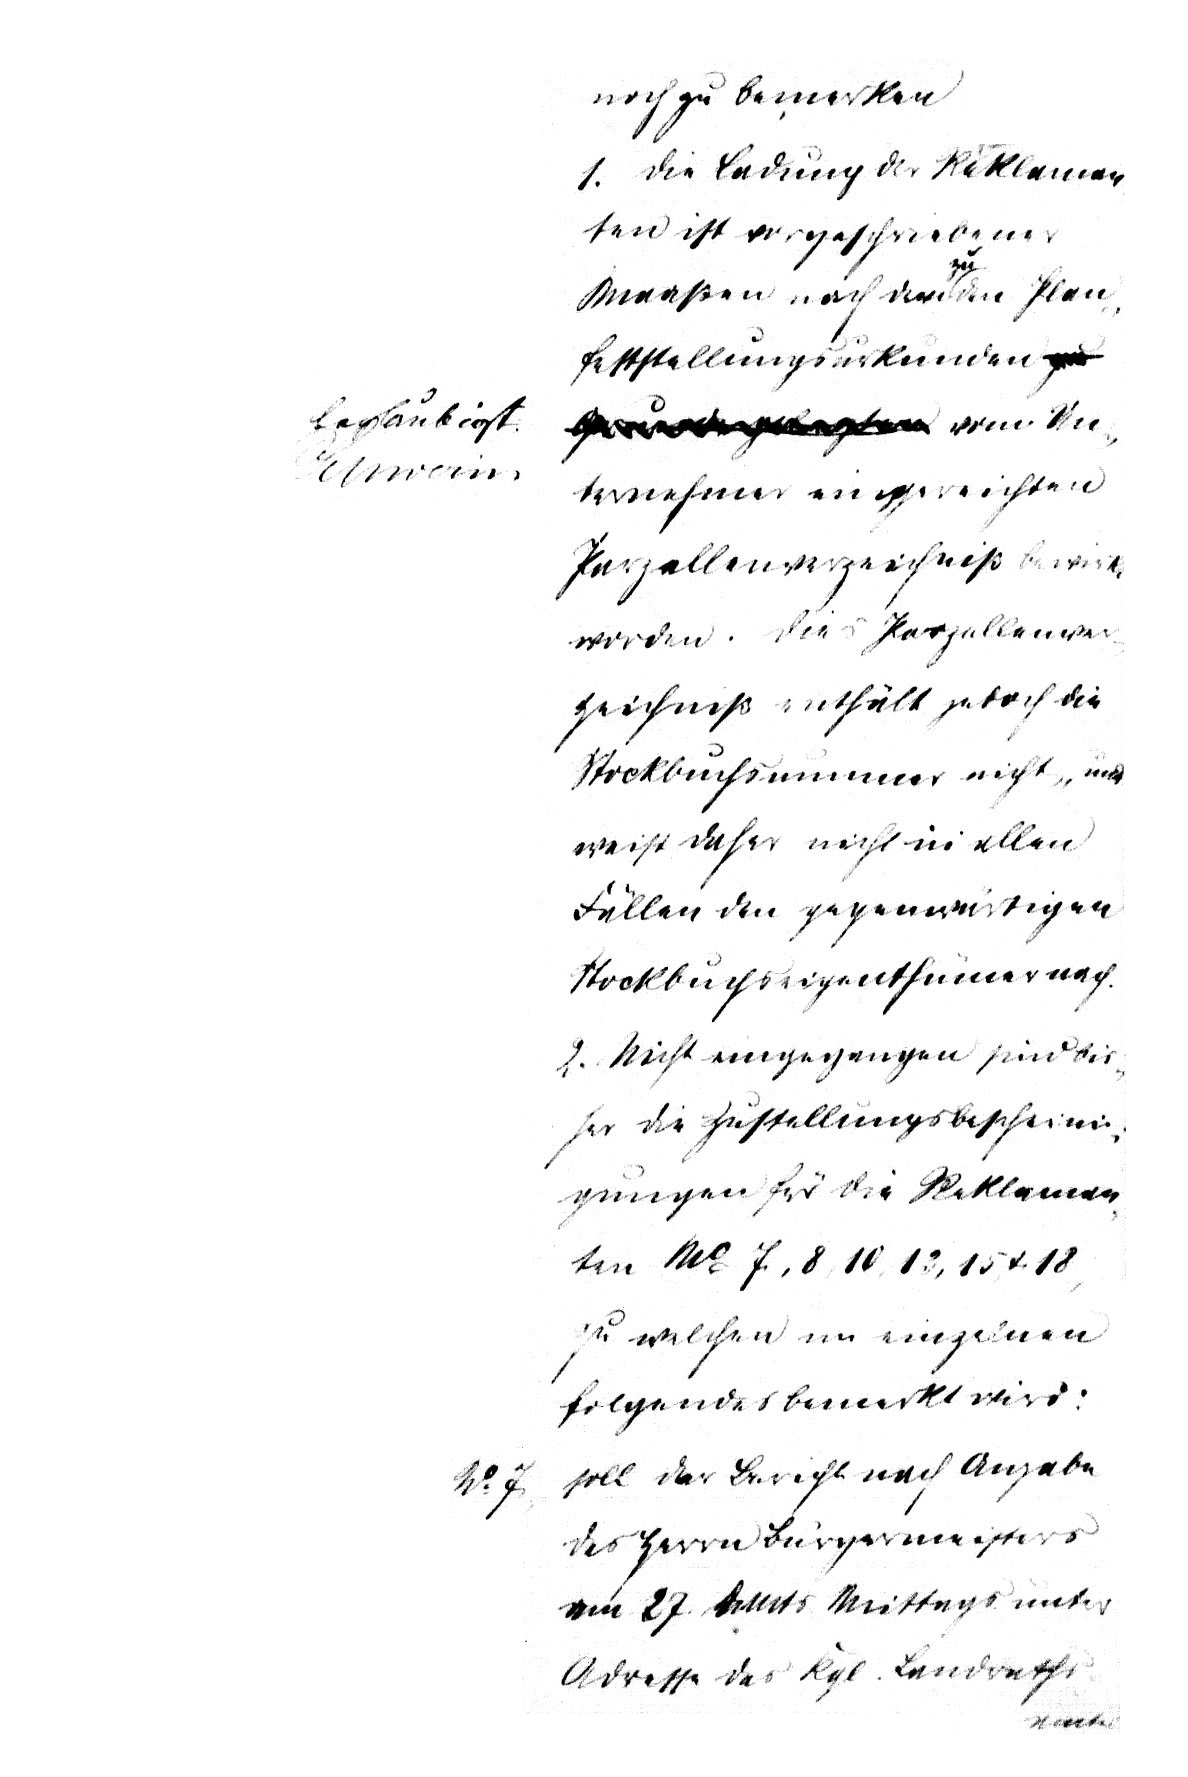 noch zu bemerken
1. die Ladung der Reklaman
ten ist vorgeschriebener
zu
Maaßen nach dem den Plan-
feststellungsurkunden zu
Beglaubigt.
Grunde gelegten vom Un-
ternehmer eingereichten
Parzellenverzeichniß bewirkt
worden. Dies Parzellenver-
zeichniß enthält jedoch die
Stockbuchsnummer nicht, und
weist daher nicht in allen
Fällen den gegenwärtigen
Stockbuchseigenthümer nach.
2. Nicht eingegangen sind bis-
her die Zustellungsbescheini-
gungen für die Reklaman-
ten No 7, 8, 10, 12, 15 & 18,
zu welchen im einzelnen
folgendes bemerkt wird:
No. 7 soll der Bericht nach Angabe
des Herrn Bürgermeisters
am 27. Mittags unter
Adresse des Kgl. Landraths